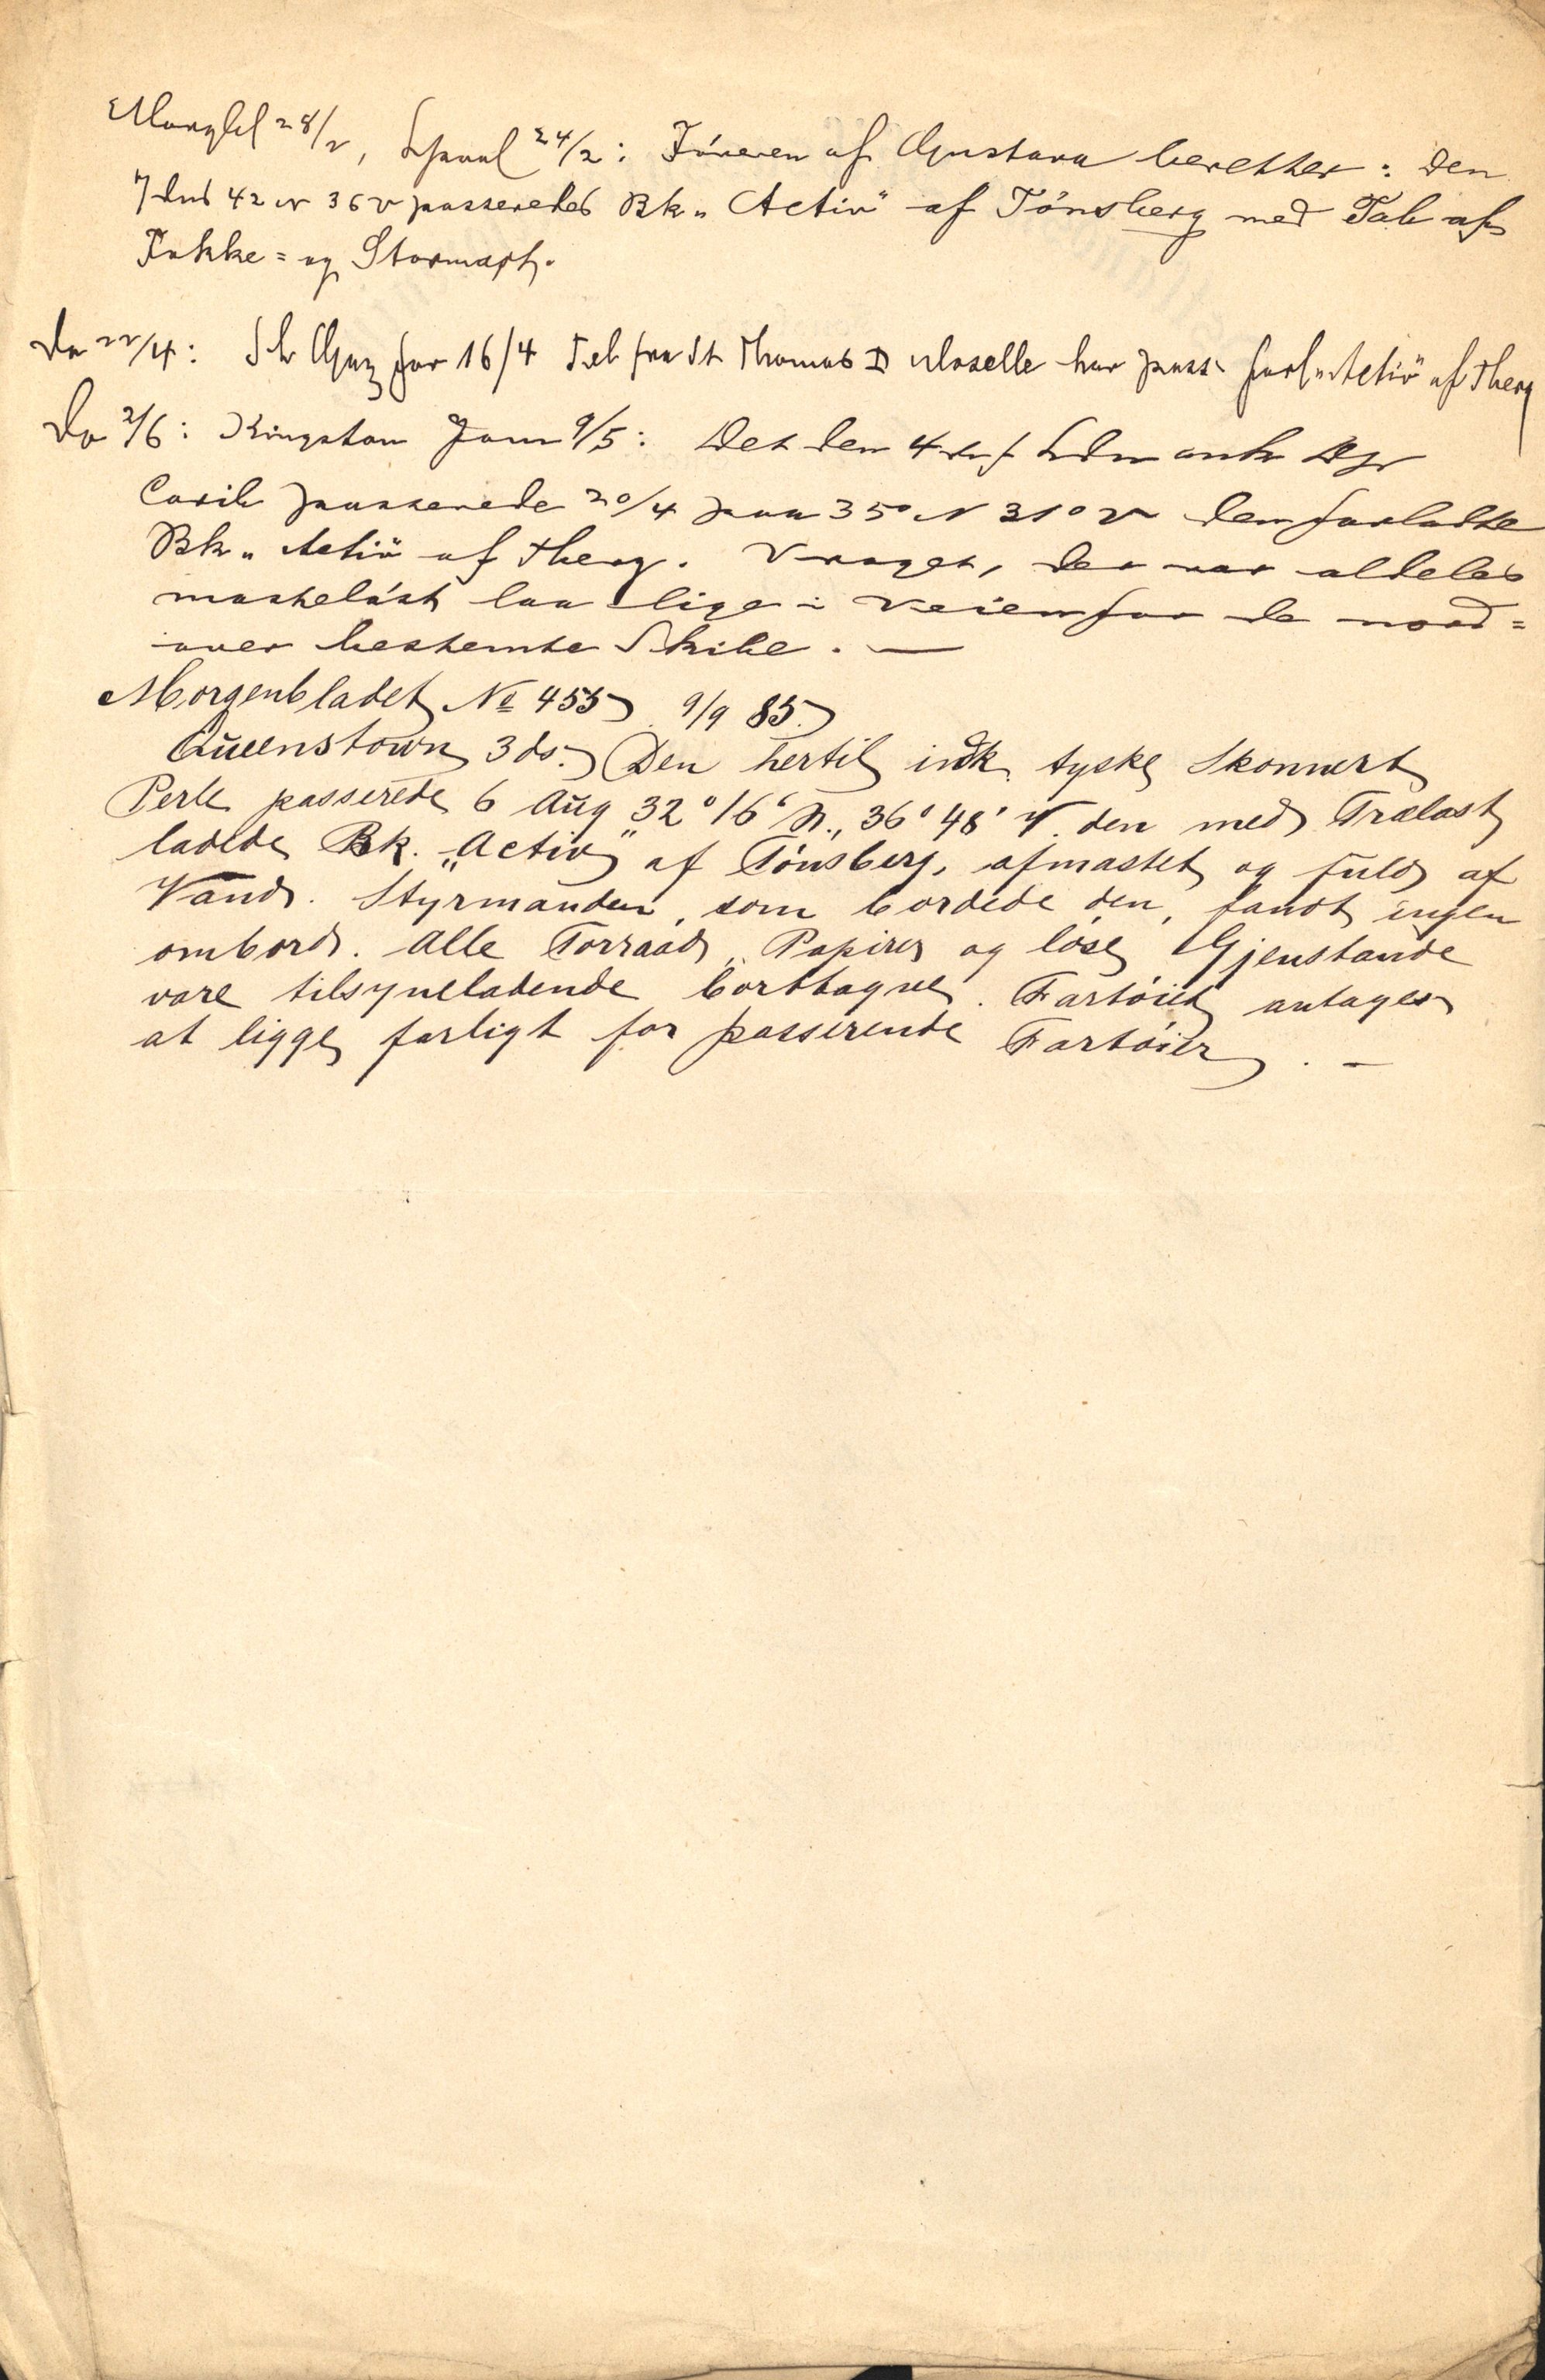 Morgbl 28/2, Lpool 24/2: Föreren af Gustava beretter: Den
7 dns 42 N 36 V passeredes Bk „Activ" af Tönsberg med Tab af
Fokke= og Stormast.
Do 22/4: Sh Gaz for 16/4 Tel fra St Thomas D Moselle har pass. forl „Activ" af Tberg
Do 2/6: Kingston Jam 9/5: Det den 4 ds f Ldn ank Dp
Carib passerede 20/4 paa 35° N 31° V den forladte
Bk „Activ" af Tberg. Vraget, der var aldeles
masteløst laa lige i Veien for de nord=
over bestemte Skibe. —
Morgenbladet No 455 9/9 85.
Queenstown 3 ds. Den hertil indk. tyske Skonnert
Perle passerede 6 Aug 32° 16' N., 36° 48' V. den med Trælast
ladede Bk. „Activ" af Tönsberg, afmastet og fuld af
Vand. Styrmanden, som bordede den, fandt ingen
ombord. Alle Forraad, Papirer og löse Gjenstande
vare tilsyneladende borttagne. Fartöiet antages
at ligge farligt for passerende Fartöier. —